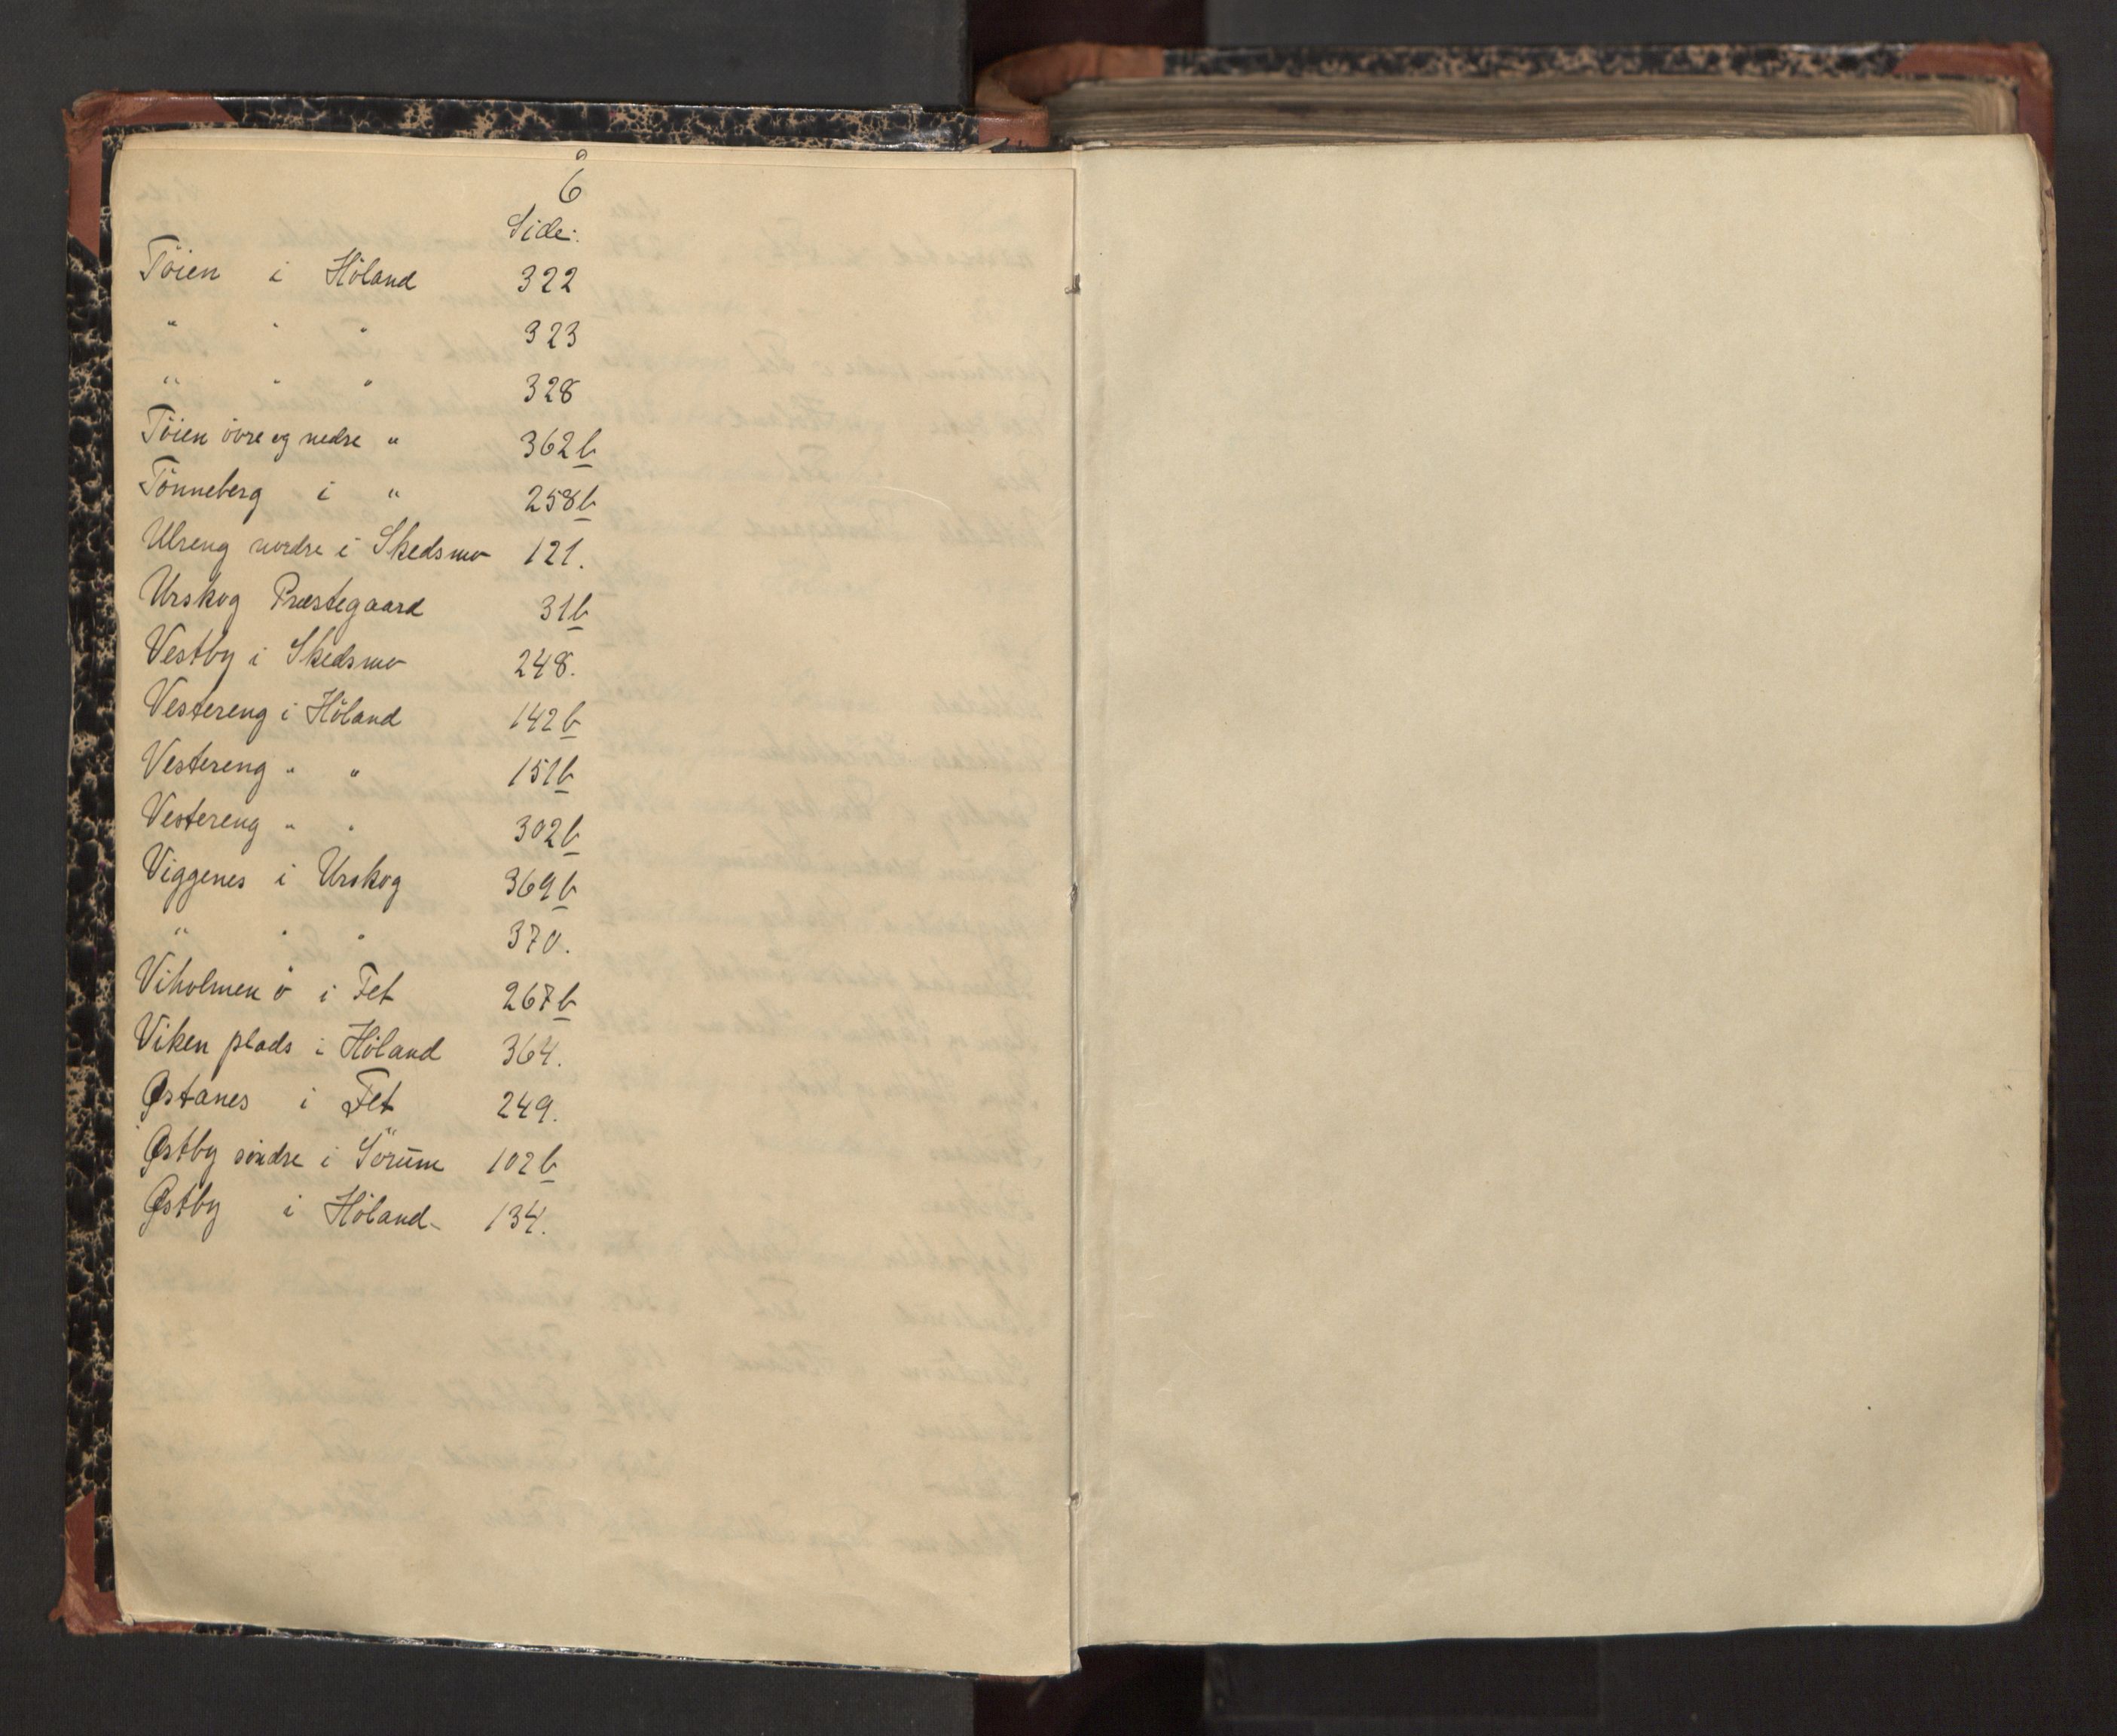 6
Side:
Töien i Höland 322
" " " 323
" " " 328
Töien övre og nedre " 362b
Tönneberg i " 258b
Ulreng nordre i Skedsmo 121.
Urskog Præstegaard 31b
Vestby i Skedsmo 248.
Vestereng i Höland 142b
Vestereng " " 151b
Vestereng " " 302b
Viggenes i Urskog 369b
" " " 370.
Viholmen ö i Fet 267b
Viken plads i Höland 364.
Østanes i Fet 249.
Østby söndre i Sörum 102b
Østby i Höland 134.